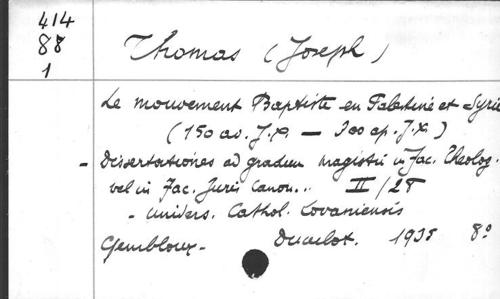 414
88
1
Thomas (Joseph)
Le mouvement Baptiste en Palestine et Syrie
(150 av. J.X. — 300 ap. J.X.)
- Dissertationes ad gradum magistri in Fac. Theolog.
vel in Fac. Juris Canon.. II/28
- Univers. Cathol. Lovaniensis
Gembloux - Duculot. 1935 8°